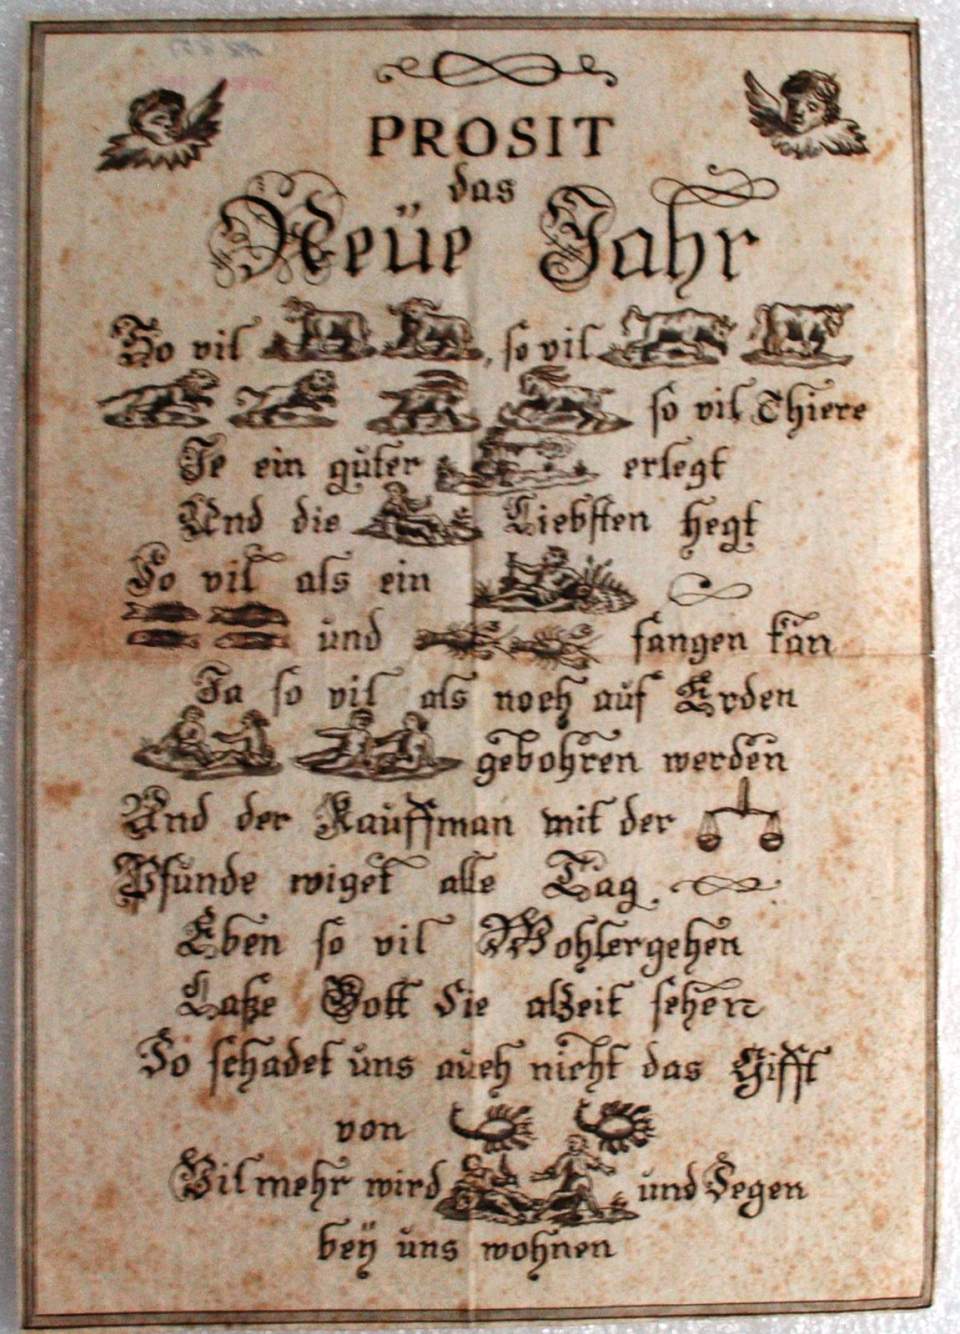 PROSIT
das
Neüe Jahr
So vil , so vil
so vil Thiere
Je ein gůter erlegt
Und die Liebsten hegt
So vil als ein
und fangen kan
Ja so vil als noch aůf Erden
gebohren werden
Und der Kaůffman mit der
Pfůnde wiget alle Tag
Eben so vil Wohlergehen
Laße Gott Sie alzeit sehen
So schadet ůns aůch nicht das Gifft
von
Vilmehr wird ůnd Segen
beÿ ůns wohnen